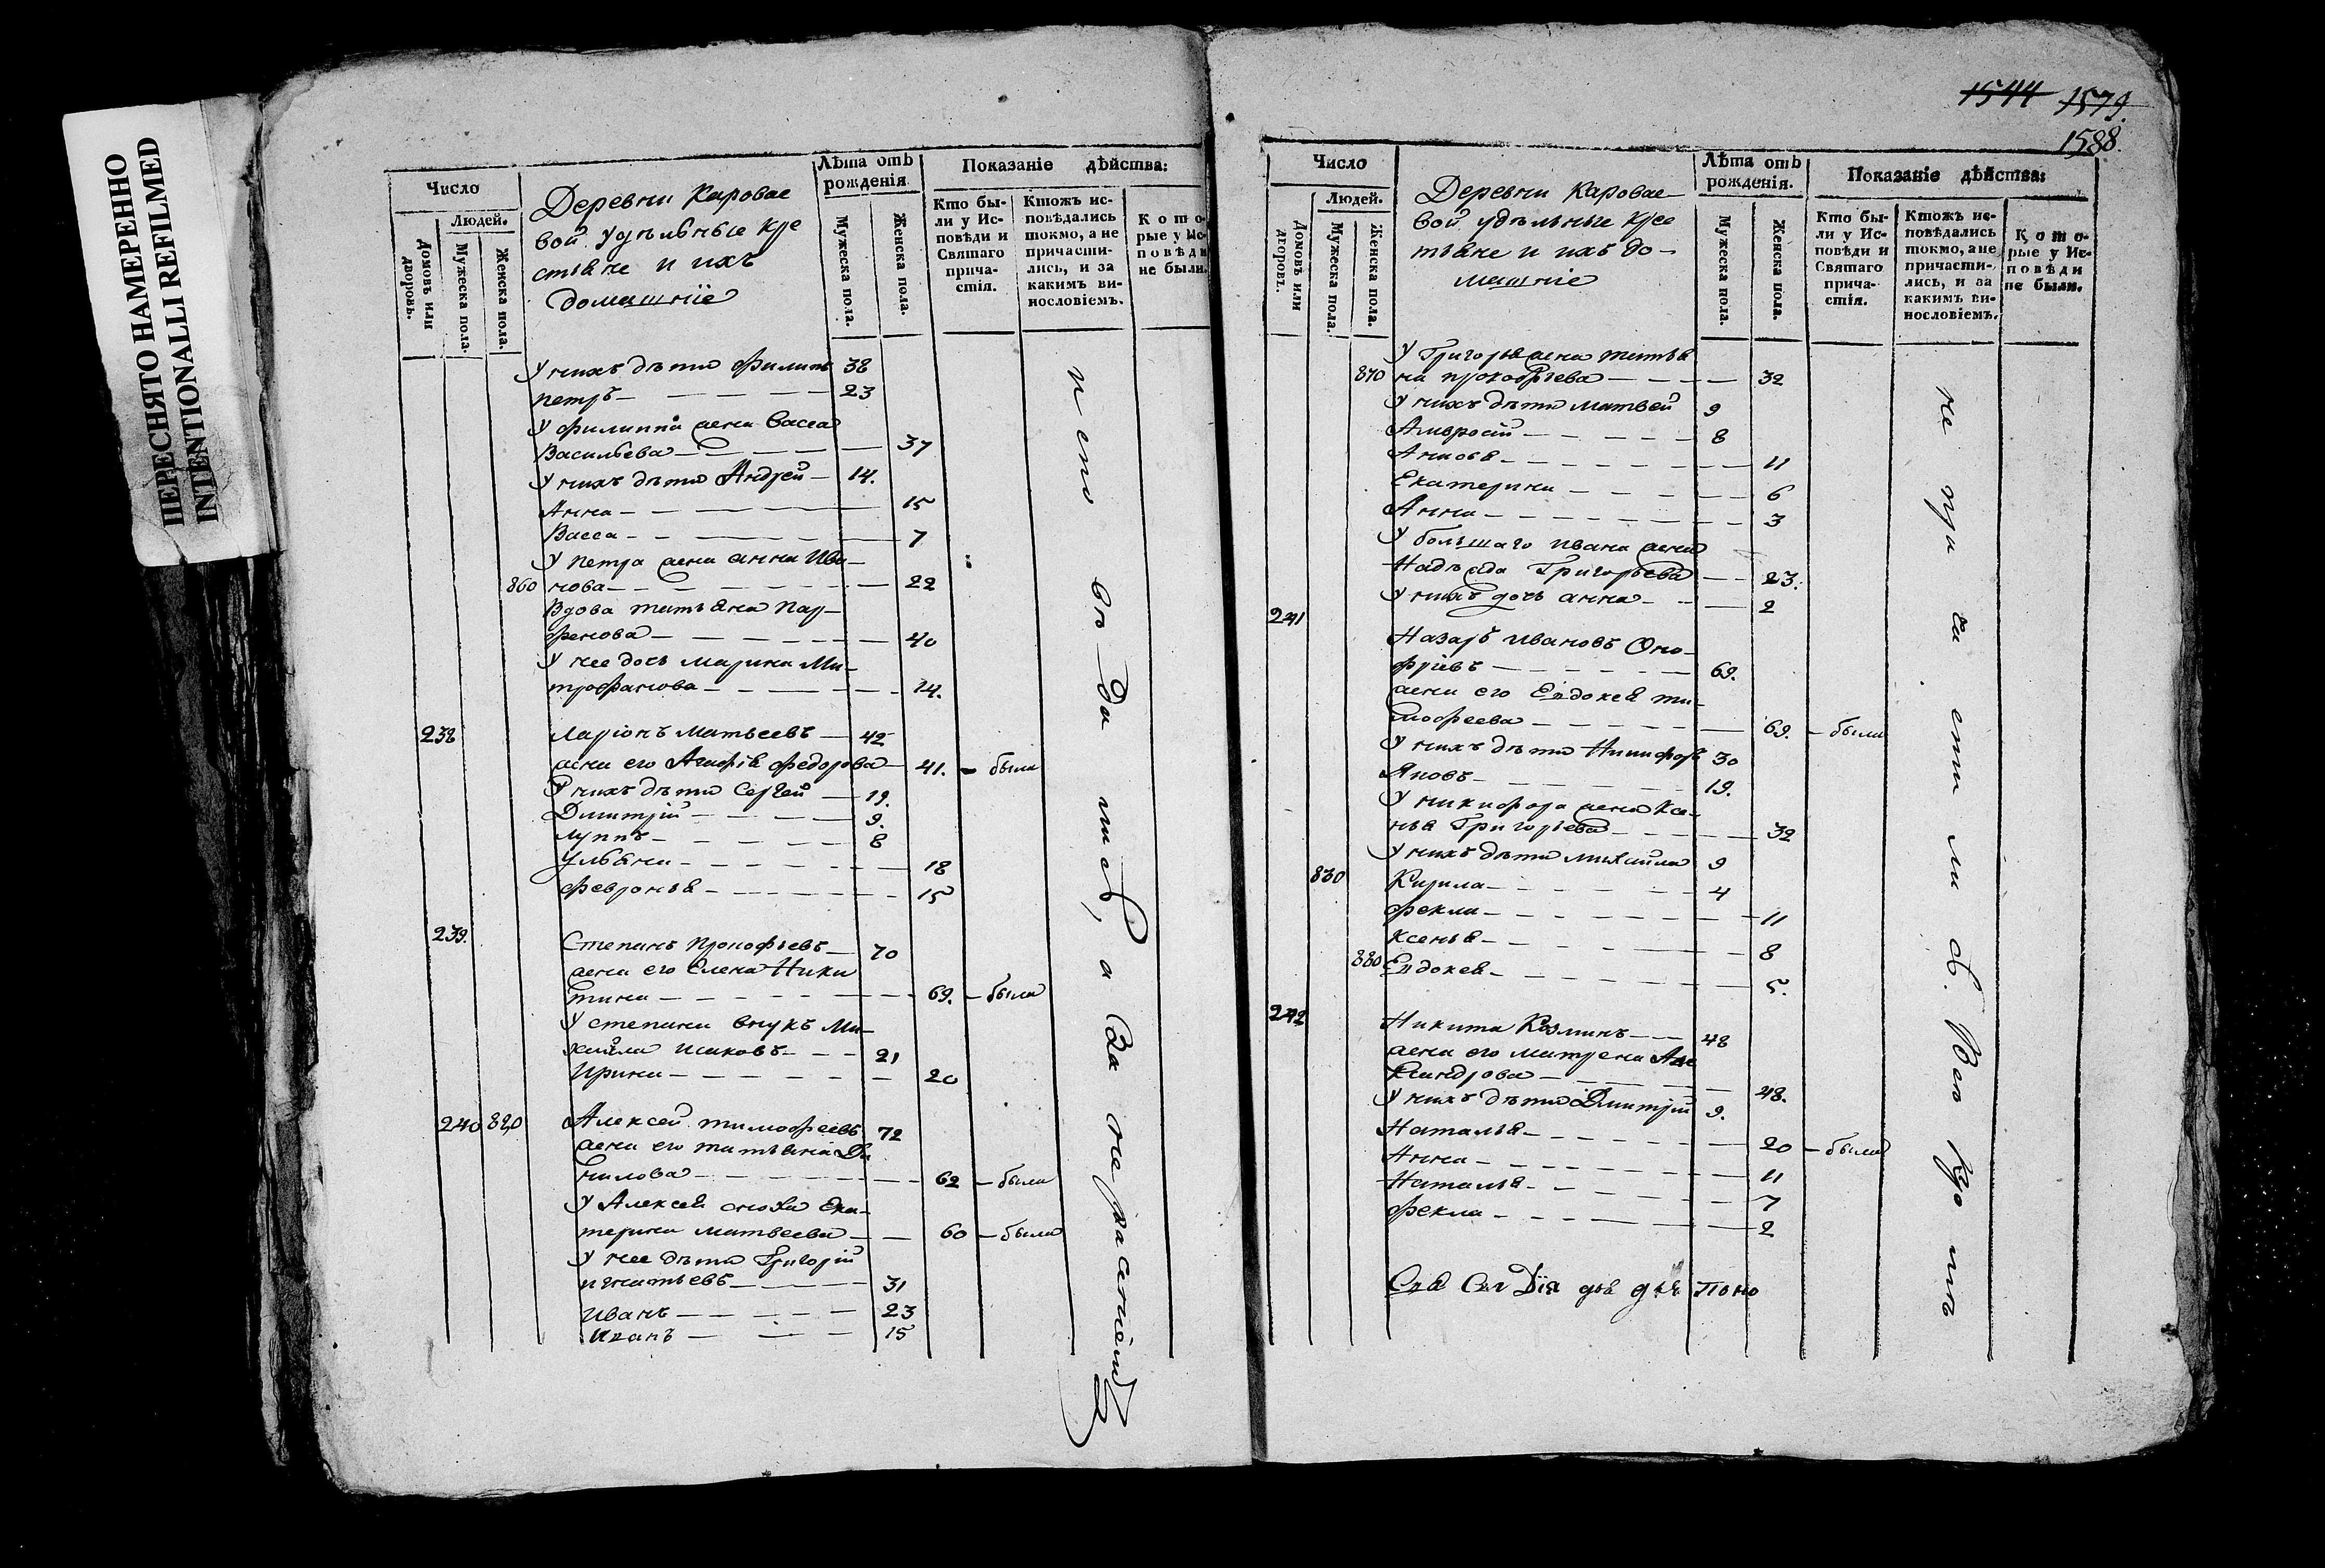 ПЕРЕСНЯТО НАМЕРЕННО
INTENTIONALLI REFILMED
Число
Людей.
Домовъ или дворовъ.
Мужеска пола.
Женска пола.
Деревни Каровае
вой удѣльные кре
стьяне и ихъ
домашніе
Лѣта отъ рожденія
Мужеска пола.
Женска пола.
Показаніе дѣйства:
Кто бы-
ли у Ис-
повѣди и
Святаго
прича-
стія.
Ктожъ ис-
повѣдались
токмо, а не
причасти-
лись, и за
какимъ ви-
нословіемъ.
Кото-
рые у Ис-
повѣди
не были.
У нихъ дѣти Филипъ 38
Петръ 23
У Филиппа жена Васса
Васильева 37
У нихъ дѣти Андрей 14.
Анна 15
Васса 7
У Петра жена Анна Ива-
860 нова 22
Вдова Татьяна Пар-
фенова 40
У нее дочь Марина Ми-
трофанова 14.
238 Ларіонъ Матвеевъ 42
жена его Агафія Федорова 41. были
У нихъ дѣти Сергей 19.
Димитрій 9.
Луппъ 8
Ульяна 18
Февронья 15
239. Степанъ Прокофьевъ 70
жена его Елена Ники
тина 69. были
У Степана внукъ Ми-
хайла 21
Ирина 20
240 820 Алексей Тимофеевъ 72
жена его Татьяна Да
нилова 62 были
У Алексея сноха Ека-
терина Матвеева 60 были
У нее дѣти Григорій
Игнатьевъ 31
Иванъ 23
Иванъ 15
и спо вѣ да лись, а за не раченіемъ
1544 1579.
1588.
Число
Людей.
Домовъ или дворовъ.
Мужеска пола.
Женска пола.
Деревни Каровае
вой удѣльные кре
стьяне и ихъ до-
машніе
Лѣта отъ рожденія.
Мужеска пола.
Женска пола.
Показаніе дѣйства:
Кто бы-
ли у Ис-
повѣди и
Святаго
прича-
стія.
Ктожъ ис-
повѣдались
токмо, а не
причасти-
лись, и за
какимъ ви-
нословіемъ.
Кото-
рые у Ис-
повѣди
не были.
У Григорья жена Татья
870 на Прокофьева 32
У нихъ дѣти Матвей 9
Амвросій 8
11
Екатерина 6
Анна 3
У большаго Ивана жена
Надежда Григорьева 23.
У нихъ дочь Анна 2
241 Назаръ Ивановъ Оно-
фріевъ 69.
жена его Евдокея Ти-
мофеева 69. были
У нихъ дѣти Никифоръ 30
Яковъ 19.
У Никифора жена Ксе-
нья Григорьева 32
У нихъ дѣти Михайла 9
830 Кирила 4
Фекла 11
Ксенья 8
880 Евдокея 5.
242 Никита Козминъ 48
жена его Матрена Але
ксандрова 48.
У нихъ дѣти Димитрій 9.
Наталья 20 были
Анна 11
Наталья 7
Фекла 2